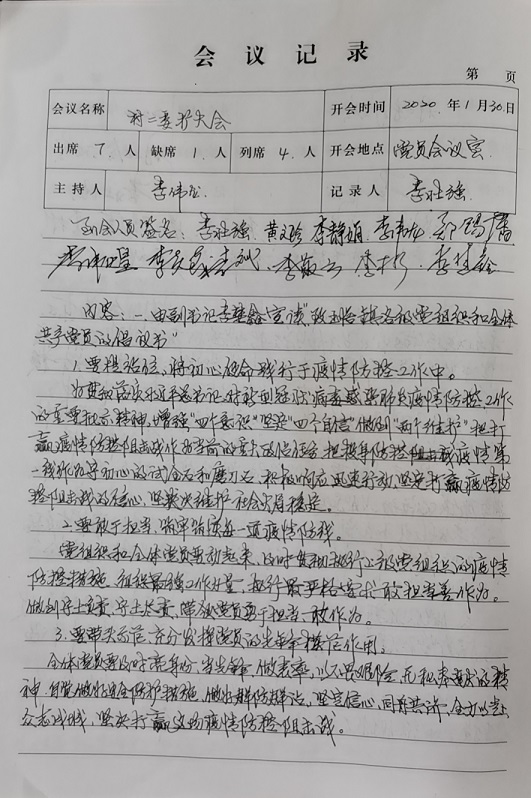 会议记录
第 页
会议名称 村二委扩大会 开会时间 2020年1月30日
出席 7 人 缺席 1 人 列席 4 人 开会地点 党员会议室
主持人 李伟龙 记录人 李壮强
到会人员签名：李壮强 黄文珍 李静娟 李伟龙 郑锡
李
内容：一、由副书记李 宣读"致 镇各级党组织和全体
共产党员的倡议书"
1.要提站位，将初心使命践行于疫情防控工作中。
为贯彻落实习近平总书记对新型冠状病毒感染肺炎疫情防控工作
的重要批示精神，增强"四个意识"坚定"四个自信"做到"两个维护"把打
赢疫情防控阻击战作为当前的重大政治任务，把投身防控阻击战疫情第
一线作为守初心的试金石和磨刀石，积极响应迅速行动，坚定打赢疫情防
控阻击战的信心，坚决维护社会大局稳定。
2.要敢于担当，踏牢踏实每一项疫情防线。
党组织和全体党员要动起来，及时贯彻执行上级党组织的疫情
防控措施，组织最强工作力量，执行最严格要求，敢担当善作为。
做到守土有责，守土尽责，带领党员勇于担当、敢作为。
3.要带头示范，充分发挥党员的先锋模范作用。
全体党员要及时亮身份，当先锋，做表率，以不畏艰险、无私奉献的精
神，自觉做好适合防护措施，做出群防群治，坚定信心，同舟共济，全力以赴，
众志成城，坚决打赢这场疫情防控阻击战。